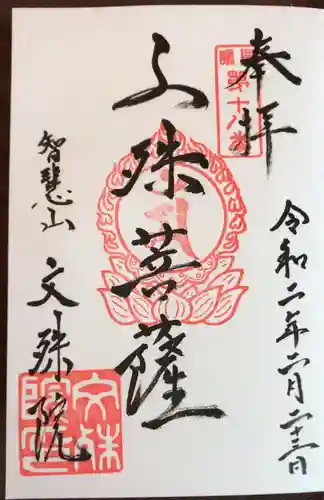 奉拝
第十八番
令和二年六月二十三日
文殊菩薩
智慧山
文殊院
文殊院